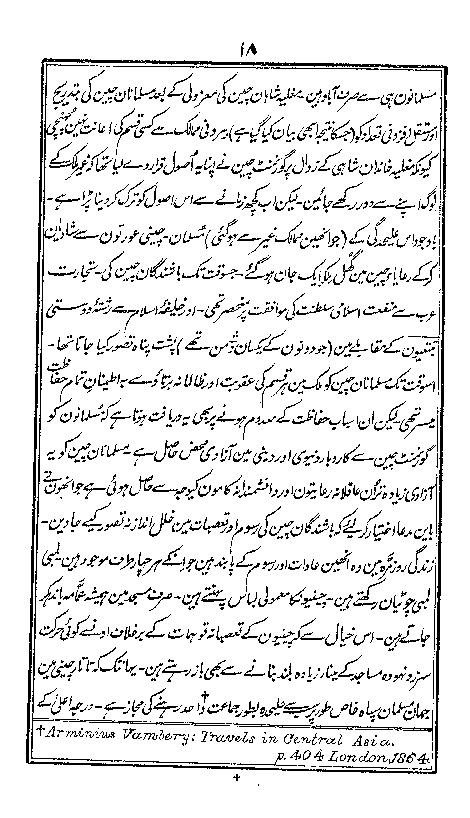 ۱۸
مسلمانون ہی سے صرف آباد ہین۔ مغلیہ شاہان چین کی معزولی کے بعد مسلمانان چین کی بتدریج
اور مستقل افزونی تعداد کو (جسکا نتیجا بھی بیان کیا گیا ہے) بیرونی ممالک سے کسی قسم کی اعانت نہین پہونچی
کیونکہ مغلیہ خاندان شاہی کے زوال پر گورنمنٹ چین نے اپنا یہ اُصول قرار دے لیا تھا کہ غیر ملک کے
لوگ اپنے سے دور رکھے جائین۔ لیکن اب کچھ زمانے سے اس اصول کو ترک کر دینا پڑا ہے۔
باوجود اس علیحدگی کے (جو انھین ممالک غیر سے ہو گئی) مُسلمان۔ چینی عورتون سے شادیان
کرکے رعایاے چین مین گھُل مِلکر ایک جان ہو گئے۔ جسوقت تک باشندگان چین کی۔ تجارت
عرب سے منفعت اسلامی سلطنت کی موافقت پر منحصر تھی۔ اور خلیفۂ اسلام سے رشتۂ دوستی
تبتیون کے مقابلے مین (جو دونون کے یکسان دشمن تھے) پشت پناہ تصور کیا جاتا تھا۔
اسوقت تک مسلمانان چین کو ملک مین ہر قسم کی عقوبت اور ظالمانہ برتاؤ سے بہ اطینان تمام حفاظت
میسر تھی لیکن ان اسباب حفاظت کے معدوم ہونے پر بھی یہ دریافت ہوتا ہے کہ مُسلمانون کو
گورنمنٹ چین سے کاروبار دنیوی اور دینی مین آزادی محض حاصل ہے۔ مسلمانان چین کو یہ
آزادی زیادہ تر اُن عاقلانہ رعایتون اور دانشمندانہ کامون کیوجہ سے حاصل ہوئی ہے جو انھون نے
باین مدعا اختیار کر لیئے کہ باشندگان چین کی رسوم اور تعصبات مین خلل انداز نہ تصور کیے جاوین۔
زندگی روزمرّہ مین وہ انھین عادات اور رسوم کے پابند ہین جو انکے ہر چہار طرف موجود ہین۔ لمبی
لمبی چوٹیان رکھتے ہین۔ چینیونکا معمولی لباس پہنتے ہین۔ صرف مسجد مین ہمیشہ عمامہ باندھکر
جاتے ہین۔ اس خیال سے کہ چینیون کے تعصبانہ توہمات کے برخلاف اونسے کوئی حرکت
سرزد نہو وہ مساجد کے مینار زیادہ بلند بنانے سے بھی باز رہتے ہین۔ یہانتک کہ تاتار چینی مین
جہان مسلمان سپاہ خاص طور پر سے علیحدہ بطور جماعت† واحد رہنے کی مجاز ہے۔ درجہ اعلیٰ کے
†Arminius Vambery: Travels in Central Asia.
p. 404 London, 1864.
+